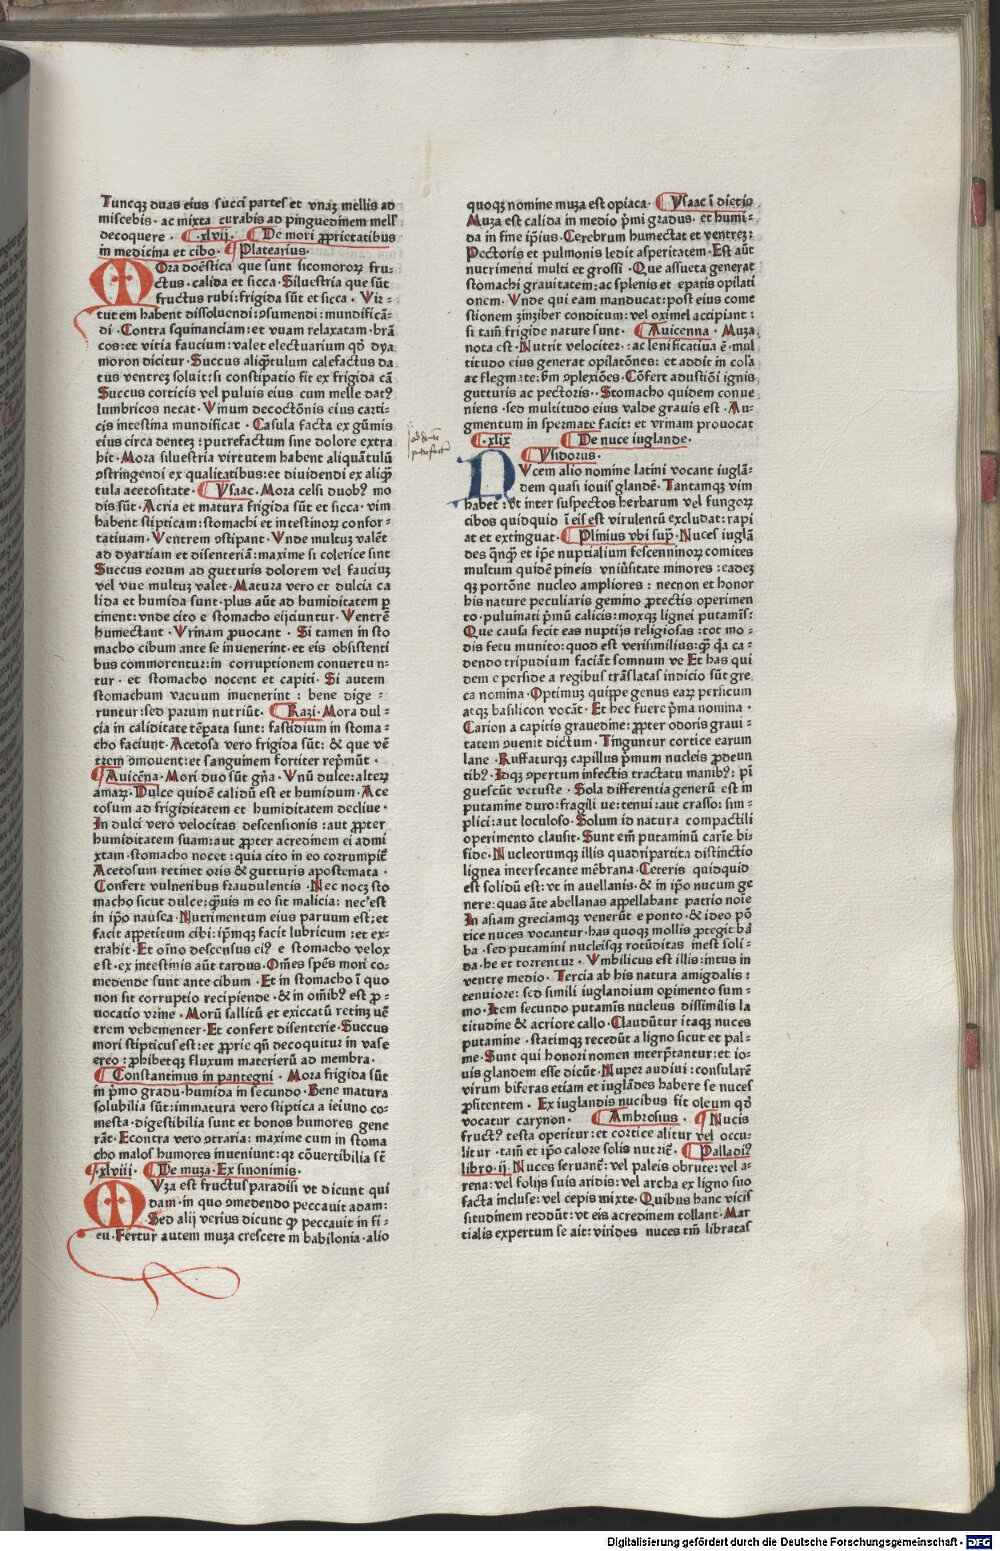 Tuncqꝫ duas eius succi partes et vnaꝫ mellis ad
miscebis · ac mixta curabis ad pinguedinem mell'
decoquere · ¶ ·xlvij· ¶ De mori ꝓprietatibus
in medicina et cibo· ¶ Platearius·
MOra doēstica que sunt sicomoroꝝ fru⸗
ctus · calida et sicca · Siluestria que sūt
fructus rubi: frigida sūt et sicca · Vir⸗
tutem habent dissoluendi: ꝯsumendi: mundificā⸗
di · Contra squinanciam: et vuam relaxatam · brā
cos: et vitia faucium: valet electuarium qd̄ dya
moron dicitur · Succus aliqꝫtulum calefactus da
tus ventreꝫ soluit: si constipatio fit ex frigida cā
Succus corticis vel puluis eius cum melle datꝰ
lumbricos necat · Vinum decoctōnis eius corti⸗
cis intestina mundificat · Casula facta ex gūmis
eius circa denteꝫ: putrefactum sine dolore extra
hit · Mora siluestria virtutem habent aliquātulū
ꝯstringendi ex qualitatibus: et diuidendi ex aliqꝫ
tula acetositate · ¶ Ysaac· Mora celsi duobꝰ mo
dis sūt · Acria et matura frigida sūt et sicca · vim
habent stipticam: stomachi et intestinoꝝ confor⸗
tatiuam · Ventrem ꝯstipant · Vnde multuꝫ valēt
ad dyarriam et disenteriā: maxime si colerice sint
Succus eorum ad gutturis dolorem vel fauciuꝫ
vel vue multuꝫ valet · Matura vero et dulcia ca
lida et humida sunt · plus aūt ad humiditatem ꝑ
tinent: vnde cito e stomacho eijciuntur · Ventrē
humectant · Vrinam ꝓuocant · Si tamen in sto
macho cibum ante se inuenerint · et eis obsistenti
bus commorentur: in corruptionem conuertun⸗
tur · et stomacho nocent et capiti · Si autem
stomachum vacuum inuenerint : bene dige⸗
runtur: sed parum nutriūt· ¶ Razi· Mora dul⸗
cia in caliditate tēpata sunt: fastidium in stoma⸗
cho faciunt · Acetosa vero frigida sūt: & que vē
trem ꝯmouent: et sanguinem fortiter repīmūt ·
¶ Auicēna· Mori duo sūt gn̄a · Vnū dulce: alteꝝ
amaꝝ · Dulce quidē calidū est et humidum · Ace
tosum ad frigiditatem et humiditatem decliue ·
In dulci vero velocitas descensionis : aut ꝓpter
humiditatem suam: aut ꝓpter acredinem ei admi
xtam · stomacho nocet: quia cito in eo corrumpit᷑
Acetosum retinet oris & gutturis apostemata ·
Confert vulneribus fraudulentis · Nec nocꝫ sto
macho sicut dulce: qꝫuis in eo sit malicia: nec est
in ip̄o nausea · Nutrimentum eius paruum est: et
facit appetitum cibi: ip̄mqꝫ facit lubricum : et ex⸗
trahit · Et oīno descensus eiꝰ e stomacho velox
est · ex intestinis aūt tardus · Om̄es spēs mori co⸗
medende sunt ante cibum · Et in stomacho ī quo
non sit corruptio recipiende · & in om̄ibꝰ est ꝓ⸗
uocatio vrine · Morū sallitū et exiccatū retinꝫ vē
trem vehementer · Et confert disenterie · Succus
mori stipticus est: et ꝓprie qn̄ decoquitur in vase
ereo: ꝓhibetqꝫ fluxum materierū ad membra·
¶ Constantinus in pantegni · Mora frigida sūt
in p̄mo gradu · humida in secundo · Bene matura
solubilia sūt: immatura vero stiptica a ieiuno co⸗
mesta · digestibilia sunt et bonos humores gene
rāt · Econtra vero ꝯtraria: maxime cum in stoma
cho malos humores inueniunt: qꝛ cōuertibilia sūt
¶·xlviii· ¶ De muza· Ex sinonimis·
MVza est fructus paradisi vt dicunt qui
dam · in quo ꝯmedendo peccauit adam:
Sed alij verius dicunt qꝫ peccauit in fi⸗
cu · Fertur autem muza crescere in babilonia · alio
quoqꝫ nomine muza est opiaca· ¶ Ysaac ī dietis
Muza est calida in medio p̄mi gradus · et humi⸗
da in fine ip̄ius · Cerebrum humectat et ventreꝫ:
Pectoris et pulmonis ledit asperitatem · Est aūt
nutrimenti multi et grossi · Que assueta generat
stomachi grauitatem: ac splenis et epatis opilati
onem · Vnde qui eam manducat: post eius come
stionem zinziber conditum: vel oximel accipiant :
si tam̄ frigide nature sunt · ¶ Auicenna · Muza
nota est · Nutrit velociteꝛ : ac lenificatiua ē · mul
titudo eius generat opilatōnes: et addit in colꝰa
ac flegmate: ßm ꝯplexiōes · Cōfert adustiōi ignis
gutturis ac pectoris · Stomacho quidem conue
niens · sed multitudo eius valde grauis est · Au⸗
gmentum in spermate facit: et vrinam prouocat
¶·xlix ¶ De nuce iuglande·
¶ Ysidorus·
NVcem alio nomine latini vocant iuglā⸗
dem quasi iouis glandē · Tantamqꝫ vim
habet: vt inter suspectos herbarum vel fungoꝝ
cibos quidquid ī eis est virulentū excludat: rapi
at et extinguat· ¶ Plinius vbi supꝰ· Nuces iuglā
des qn̄qꝫ et ip̄e nuptialium fescenninoꝝ comites
multum quidē pineis vniūsitate minores : eadeꝫ
qꝫ portōne nucleo ampliores : necnon et honor
his nature peculiaris gemino ꝓtectis operimen
to · puluinati p̄mū calicis: moxqꝫ lignei putamīs:
Que causa fecit eas nuptijs religiosas : tot mo⸗
dis fetu munito: quod est verisimilius: qꝫ q̄a ca⸗
dendo tripudium faciāt somnum ve Et has qui
dem e perside a regibus trāslatas indicio sūt gre
ca nomina · Optimuꝫ quippe genus eaꝝ persicum
atqꝫ basilicon vocāt · Et hec fuere p̄ma nomina ·
Carion a capitis grauedine: ꝓpter odoris graui⸗
tatem ꝯuenit dictum · Tinguntur cortice earum
lane · Ruffaturqꝫ capillus p̄mum nucleis ꝓdeun
tibꝰ · Idqꝫ ꝯpertum infectis tractatu manibꝰ: pī
guescūt vetuste · Sola differentia generū est in
putamine duro: fragili ue: tenui: aut crasso: sim⸗
plici: aut loculoso · Solum id natura compactili
operimento clausit · Sunt em̄ putaminū carīe bi⸗
fide · Nucleorumqꝫ illis quadripartita distinctio
lignea intersecante mēbrana · Ceteris quidquid
est solidū est: vt in auellanis · & in ip̄o nucum ge
nere: quas āte abellanas appellabant patrio noīe
In asiam greciamqꝫ venerūt e ponto · & ideo pō
tice nuces vocantur · has quoqꝫ mollis ꝓtegit bā
ba · sed putamini nucleisqꝫ rotūditas inest soli⸗
da · he et torrentur · Vmbilicus est illis: intus in
ventre medio · Tercia ab his natura amigdalis :
tenuiore: sed simili iuglandium oꝑimento sum⸗
mo · Item secundo putamīs nucleus dissimilis la
titudine & acriore callo · Claudūtur itaqꝫ nuces
putamine · statimqꝫ recedūt a ligno sicut et pal⸗
me · Sunt qui honori nomen interp̄tantur: et io⸗
uis glandem esse dicūt · Nuper audiui : consularē
virum biferas etiam et iuglādes habere se nuces
ꝓfitentem · Ex iuglandis nucibus fit oleum qd̄
vocatur carynon · ¶ Ambrosius · ¶ Nucis
fructꝰ testa operitur: et cortice alitur vel occu⸗
litur · tam̄ et ip̄o calore solis nutrit᷑ · ¶ Palladiꝰ
libro · ij· Nuces seruant᷑: vel paleis obrute: vel a⸗
rena: vel folijs suis aridis: vel archa ex ligno suo
facta incluse: vel cepis mixte · Quibus hanc vicis
situdinem reddūt: vt eis acredinem tollant · Mar
tialis expertum se ait: virides nuces tm̄ libratas
Digitalisierung gefördert durch die Deutsche Forschungsgemeinschaft - DFG